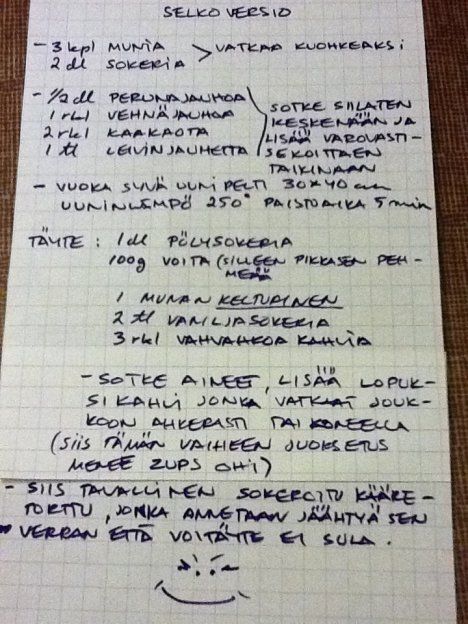 SELKO VERSIO
- 3 kpl MUNIA > VATKAA KUOHKEAKSI
2 dl SOKERIA
- ½ dl PERUNAJAUHOA
1 rkl VEHNÄJAUHOA
2 rkl KAAKAOTA
1 tl LEIVINJAUHETTA
SOTKE SIILATEN
KESKENÄÄN JA
LISÄÄ VAROVASTI-
SEKOITTAEN
TAIKINAAN
- VUOKA SYVÄ UUNIPELTI 30x40 cm
UUNINLÄMPÖ 250° PAISTOAIKA 5 min
TÄYTE: 1 dl PÖLYSOKERIA
100g VOITA (SILLEEN PIKKASEN PEH-
MEÄÄ
1 MUNAN KELTUAINEN
2 tl VANILJASOKERIA
3 rkl VAHVAHKOA KAHVIA
- SOTKE AINEET, LISÄÄ LOPUK-
SI KAHVI JONKA VATKAAT JOUK-
KOON AHKERASTI TAI KONEELLA
(SIIS TÄMÄN VAIHEEN JUOKSETUS
MENEE ZUPS OHI)
- SIIS TAVALLINEN SOKEROITU KÄÄRE-
TORTTU, JONKA ANNETAAN JÄÄHTYÄ SEN
VERRAN ETTÄ VOITÄYTE EI SULA.